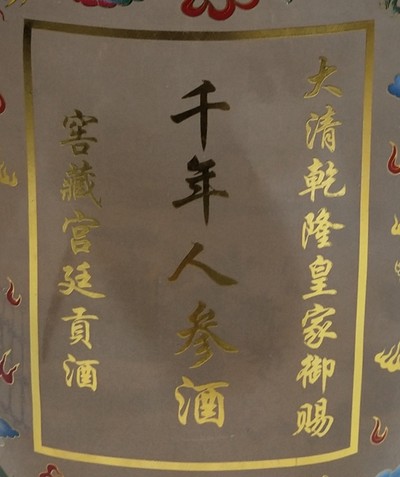 大清乾隆皇家御赐
千年人参酒
窖藏宫廷贡酒